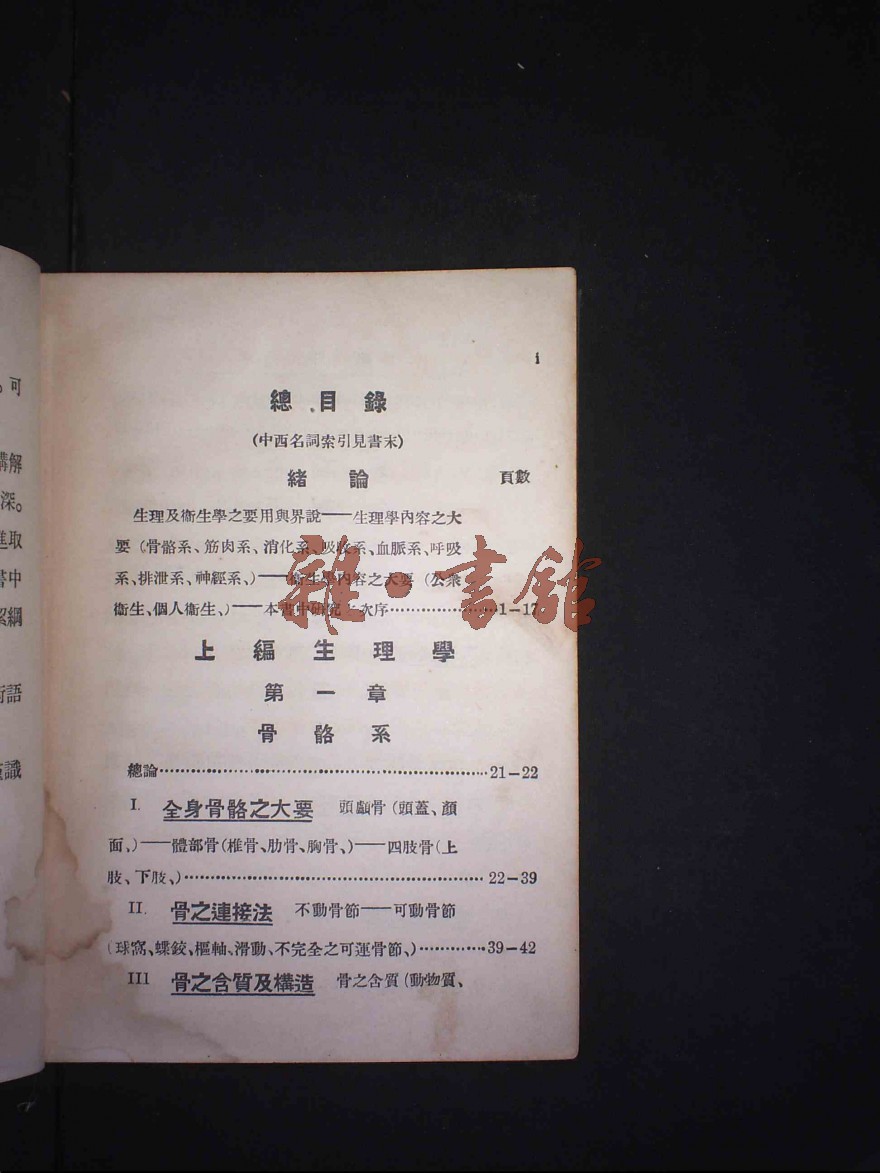 。可
講解
深。
進取
書中
綱
術語
識
i
總目錄
(中西名詞索引見書末)
緒論 頁數
生理及衞生學之要用與界說——生理學內容之大
要(骨骼系、筋肉系、消化系、吸收系、血脈系、呼吸
系、排泄系、神經系、)——衞生學內容之大要(公衆
衞生、個人衞生、)——本書中研究之次序……………………1-17
上編生理學
第一章
骨骼系
總論……………………………………………………21-22
I. 全身骨骼之大要 頭顱骨(頭蓋、顏
面、)——體部骨(椎骨、肋骨、胸骨、)——四肢骨(上
肢、下肢、)……………………………………………………22-39
II. 骨之連接法 不動骨節——可動骨節
(球窩、蝶鉸、樞軸、滑動、不完全之可運骨節、)…………39-42
III 骨之含質及構造 骨之含質(動物質、
雜·書館